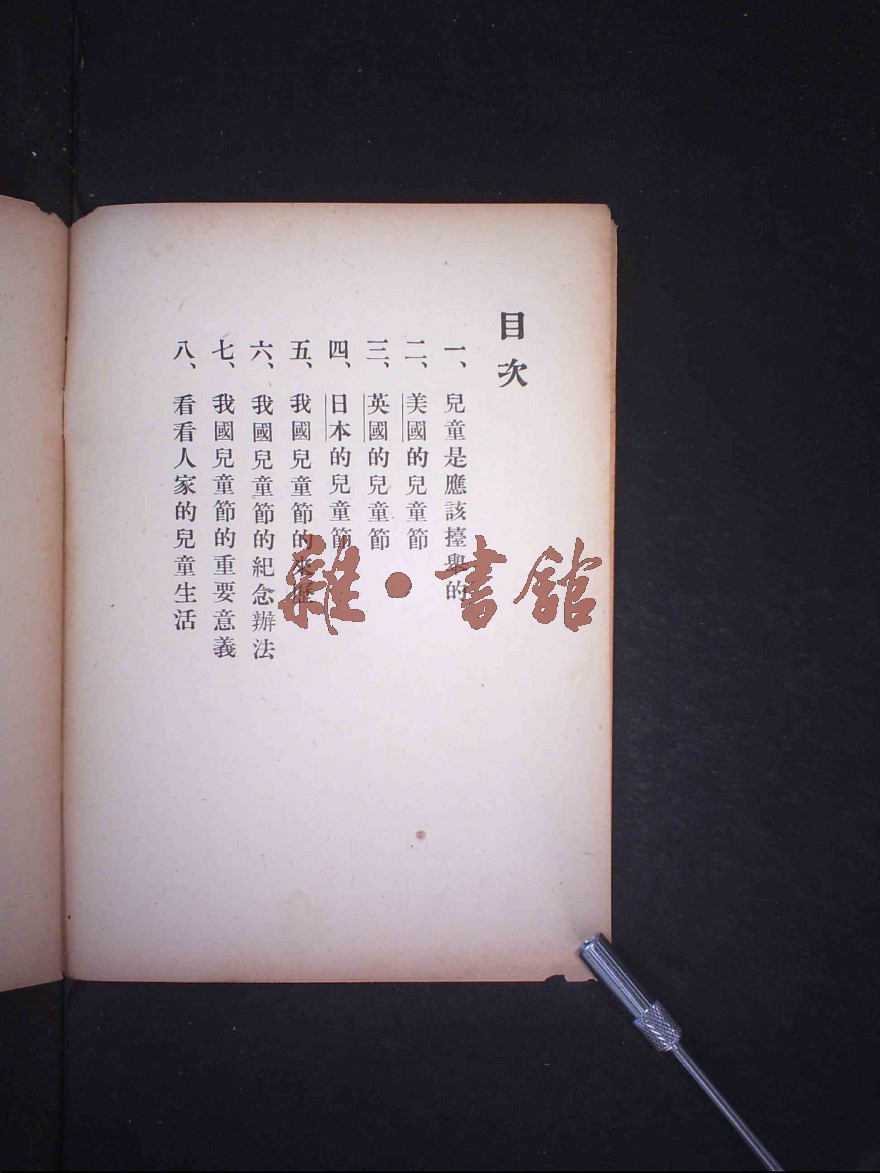 目次
一、兒童是應該擡舉的
二、美國的兒童節
三、英國的兒童節
四、日本的兒童節
五、我國兒童節的來歷
六、我國兒童節的紀念辦法
七、我國兒童節的重要意義
八、看看人家的兒童生活
雜•書館